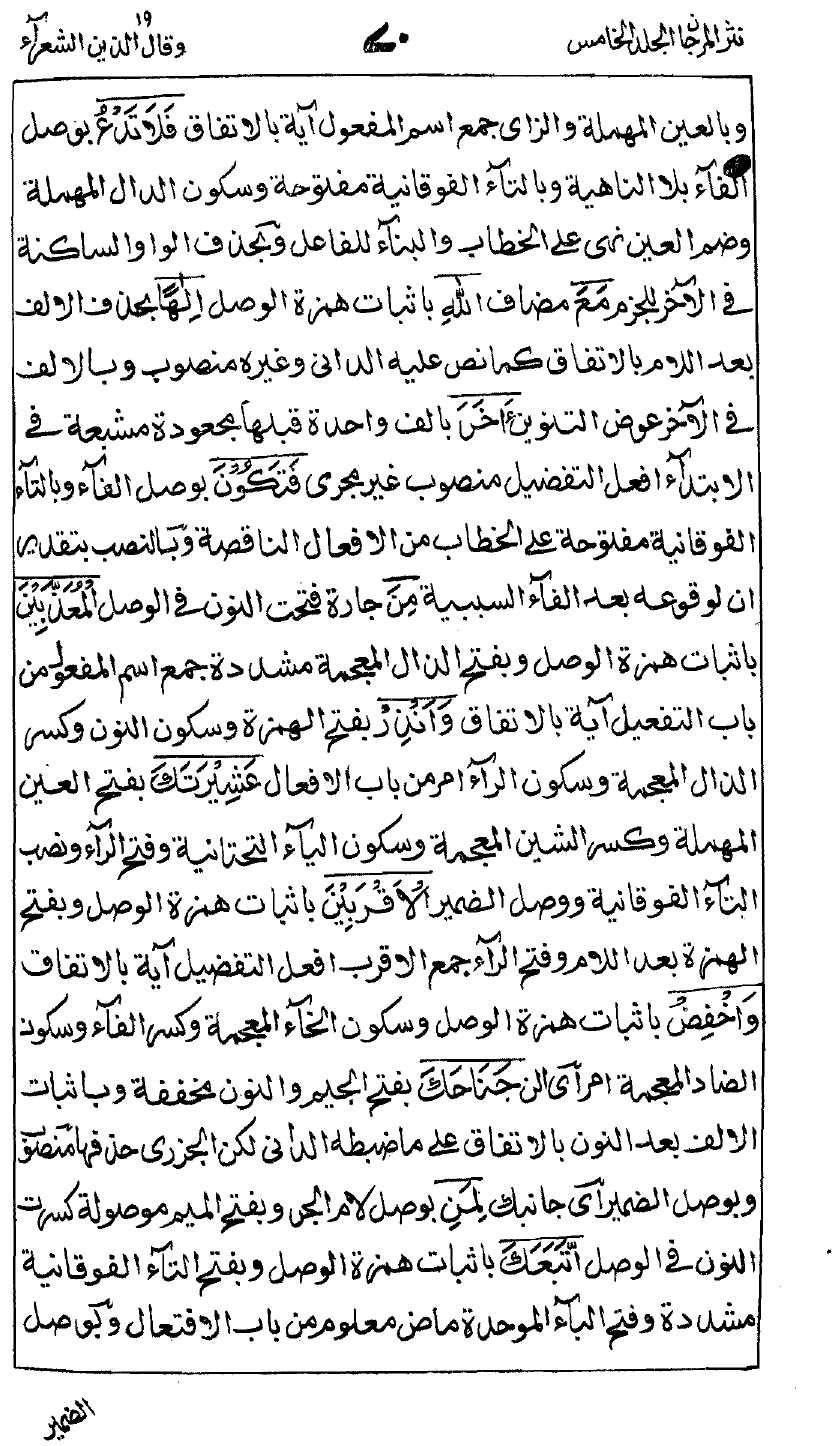 نثر المرجان الجلد الخامس
٧٠
وقال الذين ١٩ الشعرآء
وبالعين المهملة والزاى جمع اسم المفعول آية بالاتفاق فَلَاتَدْعُ بوصل
الفآء بلا الناهية وبالتآء الفوقانية مفتوحة وسكون الدال المهملة
وضم العين نهى على الخطاب والبنآء للفاعل وبحذف الواو الساكنة
فى الآخر للجزم مَعَ مضاف اللّٰهِ باثبات همزة الوصل اِلٰهًا بحذف الالف
بعد اللام بالاتفاق كما نص عليه الدانى وغيره منصوب وبالالف
فى الآخر عوض التنوين ءَاخَرَ بالف واحدة قبلها مجعودة مشبعة فى
الابتدآء افعل التفضيل منصوب غير مجرى فَتَكُوْنَ بوصل الفآء وبالتآء
الفوقانية مفتوحة على الخطاب من الافعال الناقصة وبالنصب بتقدير
ان لوقوعه بعد الفآء السببية مِنَ جارة فتحت النون فى الوصل الْمُعَذَّبِيْنَ
باثبات همزة الوصل وبفتح الذال المعجمة مشددة جمع اسم المفعول من
باب التفعيل آية بالاتفاق وَاَنْذِرْ بفتح الهمزة وسكون النون وكسر
الذال المعجمة وسكون الرآء امر من باب الافعال عَشِيْرَتَكَ بفتح العين
المهملة وكسر الشين المعجمة وسكون اليآء التحتانية وفتح الرآء ونصب
التآء الفوقانية ووصل الضمير الْاَقْرَبِيْنَ باثبات همزة الوصل وبفتح
الهمزة بعد اللام وفتح الرآء جمع الاقرب افعل التفضيل آية بالاتفاق
وَاخْفِضْ باثبات همزة الوصل وسكون الخآء المعجمة وكسر الفآء وسكون
الضاد المعجمة امر أى الن جَنَاحَكَ بفتح الجيم والنون مخففة وباثبات
الالف بعد النون بالاتفاق على ما ضبطه الدانى لكن الجزرى حذفها منصوب
وبوصل الضمير أى جانبك لِمَنِ بوصل لام الجر وبفتح الميم موصولة كسرت
النون فى الوصل اتَّبَعَكَ باثبات همزة الوصل وبفتح التآء الفوقانية
مشددة وفتح البآء الموحدة ماض معلوم من باب الافتعال وبوصل
الضمير